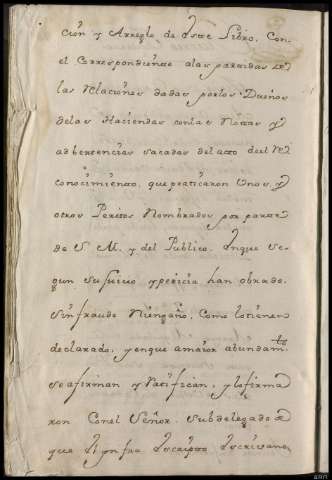 cion y Arreglo de este Libro, Con
el Correspondiente alas partidas de
las Relaciones dadas por los Dueños
de las Haciendas con las Nottas y
adbertencias sacadas del acto de el Re
conocimiento, que praticaron Unos, y
otros Peritos Nombrados por parte
de S. M. y del Publico. En que se
gun su juicio y pericia han obrado.
Sin fraude Ni engaño, Como lo tienen
declarado, y en que a maior abundam.to
se afirman y Ratifican, y lo firma
ron Con el Señor. Subdelegado de
que Yo el Escribano